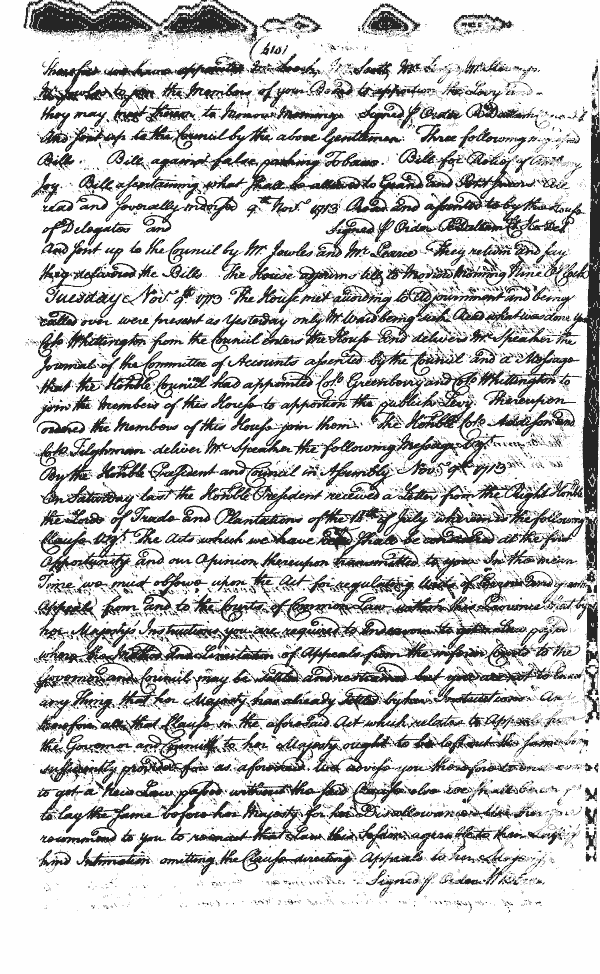 (410)
therefore we have appointed Mr Leech, Mr Scott, Mr
Mr Jowles to join the Members of your Board to apportion the Levy and
they may meet them to Morrow Morning Signed p Order
And sent up to the Council by the above Gentlemen Three following
Bills. Bill against false packing Tobacco. Bill for Relief of
Joy. Bill ascertaining what shall be allowed to Grand and Petit Jurors
read and severally indorsed 9th Novr 1713 Read and assented to by the House
of Delegates and Signed p Order
And sent up to the Council by Mr Jowles and Mr They return and say
they delivered the Bills. The House adjourns till to Morrow Morning Nine
Tuesday Novr 9th 1713 The House met according to Adjournment and being
called over were present as Yesterday only Mr Ward being sick And what was done
Colo Whittington from the Council enters the House and delivers Mr Speaker the
Journal of the Committee of Accounts assented by the Council and a Message
that the Honble Council had appointed Colo Greenberry and Colo Whittington to
join the Members of this House to apportion the publick Levy Thereupon
ordered the Members of this House join them. The Honble Colo Addison and
Colo Tilghman deliver Mr Speaker the following Message
By the Honble President and Council in Assembly Novr 9th 1713
On Saturday last the Honble President received a Letter from the Right Honble
the Lords of Trade and Plantations of the of July wherein is the following
Clause The Acts which we have shall be considered at the first
Opportunity and our Opinion thereupon transmitted to you In the mean
Time we must observe upon the Act for regulating Writs of Error and
Appeals from and to the Courts of Common Law within this Province that by
her Majestys Instructions you are required to Endeavour to get a Law passed
where the Method and Limitation of Appeals from the inferior Courts to the
Governor and Council may be Settled and restrained but you are not to
any Thing that her Majesty has already Settled by her Instructions And
therefore all that Clause in the aforesaid Act which relates to Appeals
the Governor and Council to her Majesty ought to be left out the same
sufficiently provided for as aforesaid We advise you therefore to
to get a New Law passed without the said Clause else we shall be
to lay the Same before her Majesty for her Disallowance
recommend to you to reenact that Law this Session agreeable to their
kind Intimation omitting the Clause directing Appeals to her Majesty
Signed p Order